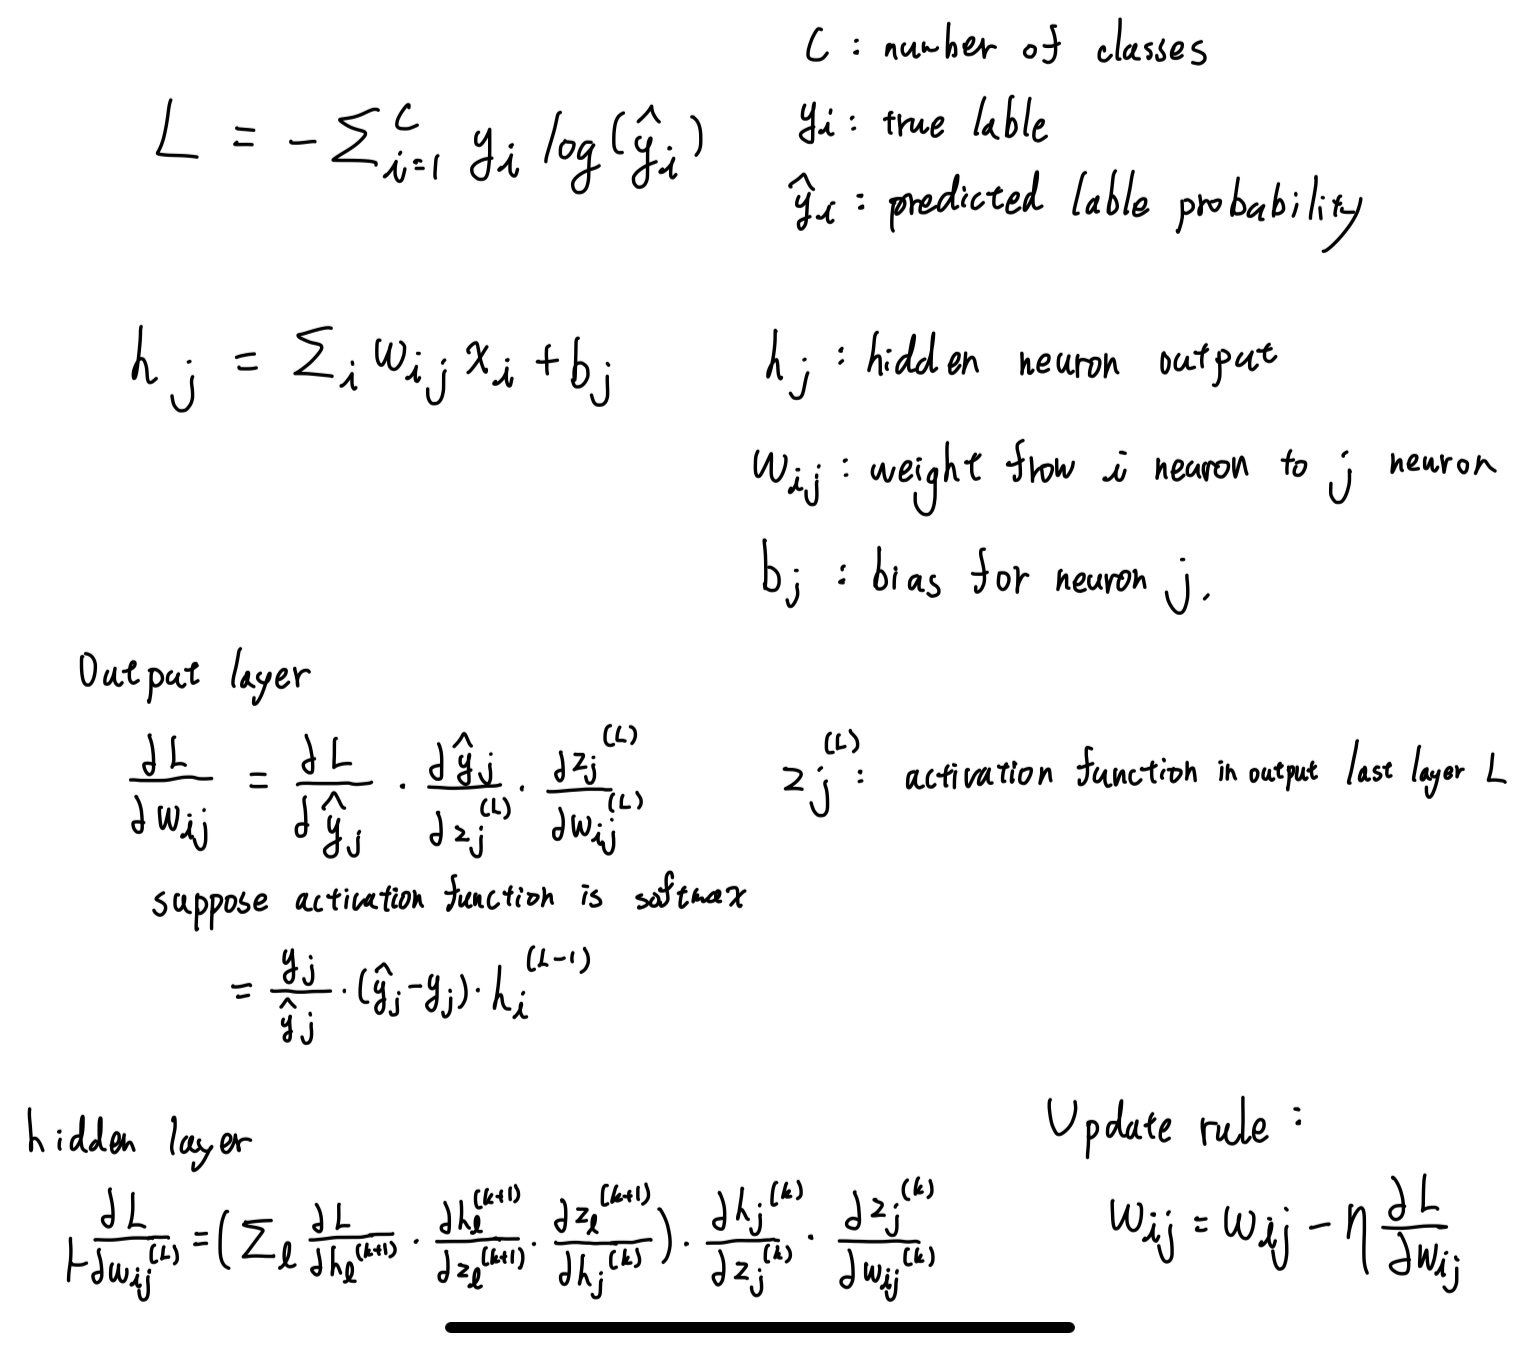 C : number of classes
L = -∑_{i=1}^{C} y_i log(ŷ_i)
y_i : true lable
ŷ_i : predicted lable probability
h_j = ∑_i w_{ij} x_i + b_j
h_j : hidden neuron output
w_{ij} : weight from i neuron to j neuron
b_j : bias for neuron j.
Output layer
∂L/∂w_{ij} = ∂L/∂ŷ_j · ∂ŷ_j/∂z_j^{(L)} · ∂z_j^{(L)}/∂w_{ij}^{(L)}
z_j^{(L)} : activation function in output last layer L
suppose activation function is softmax
= y_j/ŷ_j · (ŷ_j - y_j) · h_i^{(L-1)}
hidden layer
∂L/∂w_{ij}^{(L)} = (∑_ℓ ∂L/∂h_ℓ^{(k+1)} · ∂h_ℓ^{(k+1)}/∂z_ℓ^{(k+1)} · ∂z_ℓ^{(k+1)}/∂h_j^{(k)}) · ∂h_j^{(k)}/∂z_j^{(k)} · ∂z_j^{(k)}/∂w_{ij}^{(k)}
Update rule :
w_{ij} = w_{ij} - η ∂L/∂w_{ij}